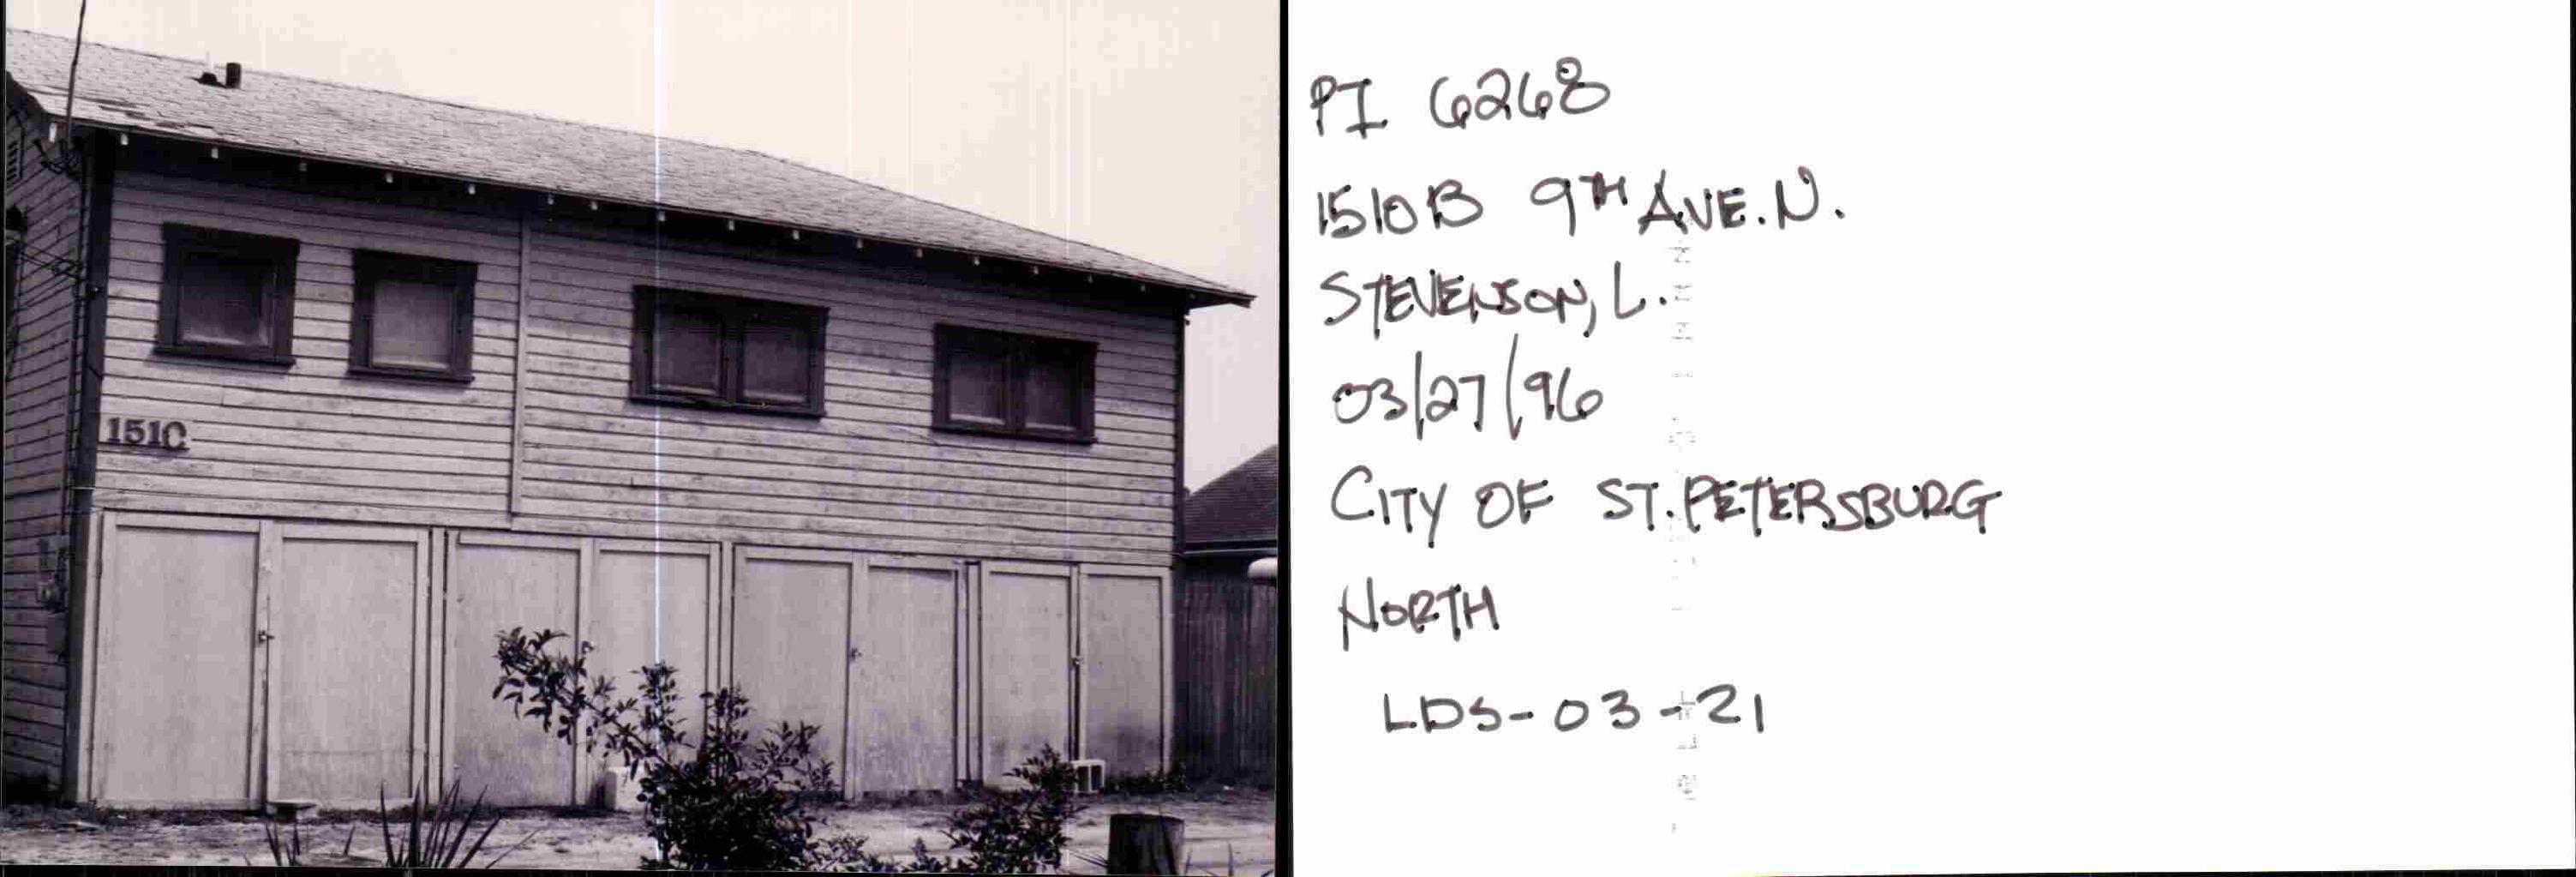 1510
PI 6268
1510B 9TH AVE. N.
STEVENSON, L.
03/27/96
CITY OF ST. PETERSBURG
NORTH
LDS-03-21